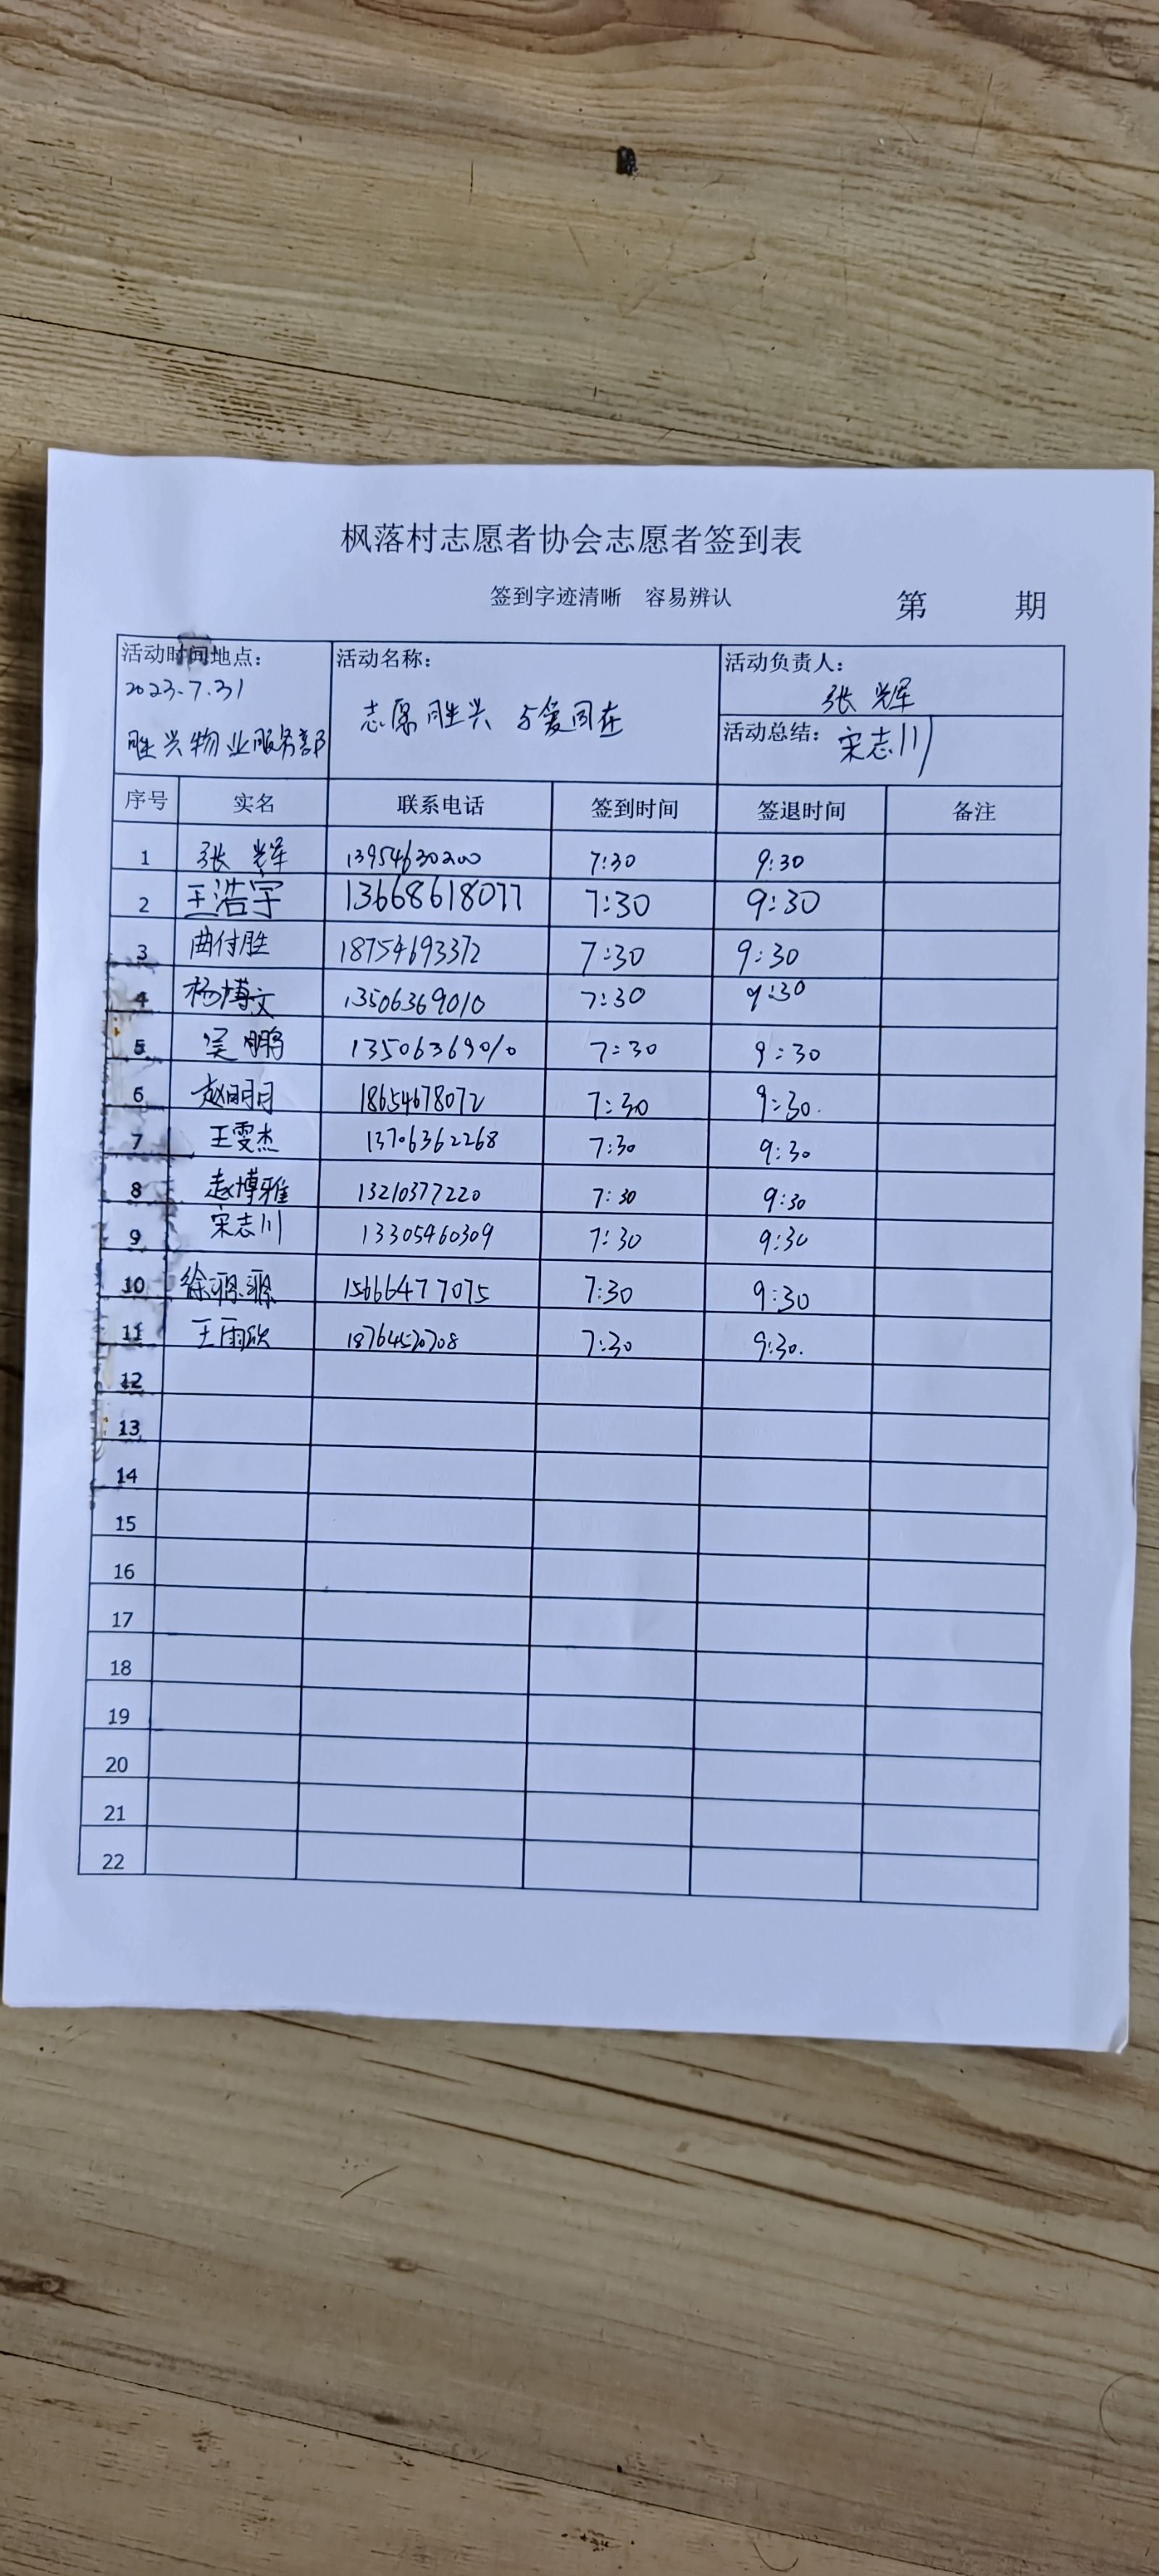 枫落村志愿者协会志愿者签到表
签到字迹清晰 容易辨认 第 期
活动时间地点: 活动名称: 活动负责人:
2023.7.31 张辉
志愿胜兴 与爱同在
胜兴物业服务部 活动总结: 宋志川
序号 实名 联系电话 签到时间 签退时间 备注
1 张辉 13954630200 7:30 9:30
2 王浩宇 13668618077 7:30 9:30
3 曲付胜 18754693372 7:30 9:30
4 杨博文 13506369010 7:30 9:30
5 吴鹏 13506369010 7:30 9:30
6 赵明月 18654678072 7:30 9:30.
7 王雯杰 13706362268 7:30 9:30
8 赵博雅 13210377220 7:30 9:30
9 宋志川 13305460309 7:30 9:30
10 徐源源 15666477075 7:30 9:30
11 王雨欣 18764520708 7:30 9:30.
12
13
14
15
16
17
18
19
20
21
22